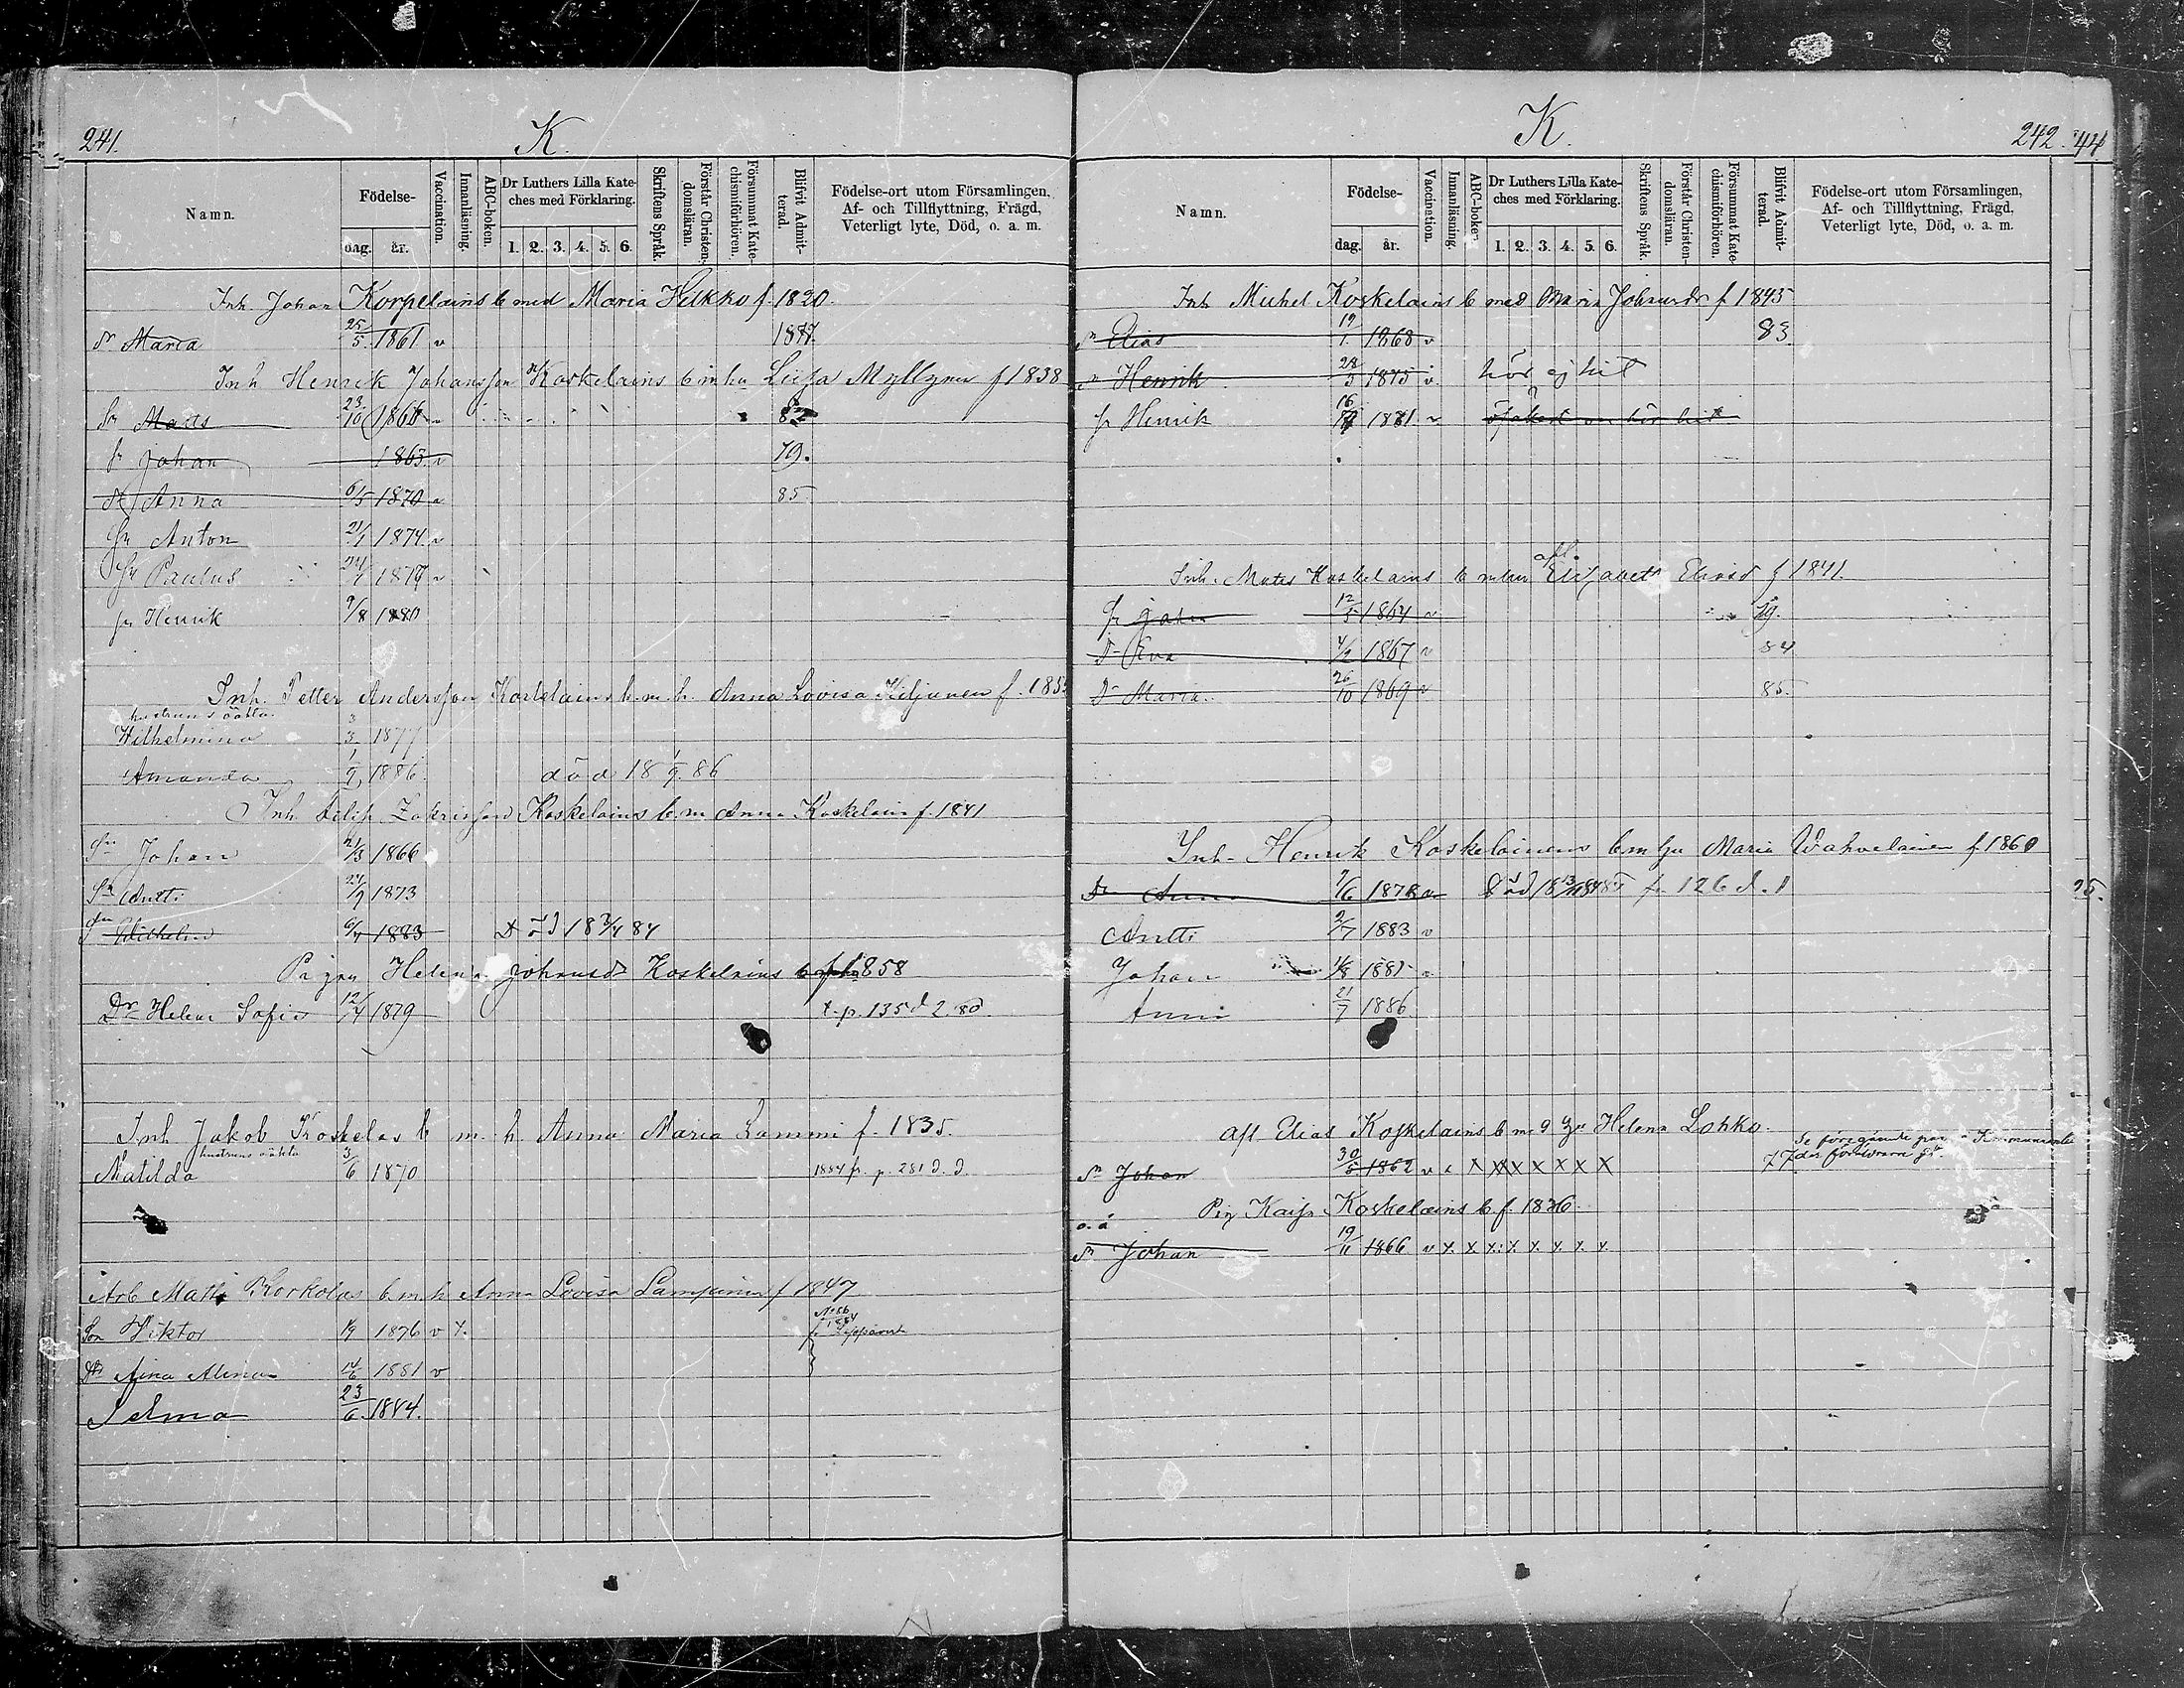 241.
K.
Namn.
Födelse-
dag.
år.
Vaccination.
Innanläsning.
ABC-boken.
Dr Luthers Lilla Kate-
ches med Förklaring.
1. 2. 3. 4. 5. 6.
Skriftens Språk.
Förstår Christen-
domsläran.
Försummat Kate-
chismiförhören.
Blifvit Admit-
terad.
Födelse-ort utom Församlingen,
Af- och Tillflyttning, Frägd,
Veterligt lyte, Död, o. a. m.
Inh. Johan Korpelains b med Maria Hukko f. 1820.
Dr Maria 25/5 1861 v 1877.
Inh Henrik Johansson Koskelains b m hu Liisa Myllynen f 1838
Sn Matts 23/10 1866 v
Sn Johan 1863 v 79.
Dr Anna 6/5 1870 v 85
Sn Anton 21/1 1874 v
Sn Paulus 1877 v
Sn Henrik 9/8 1880
Inh. Petter Andersson Koskelains b. m. h. Anna Lovisa Kiljunen f. 185
hustruns oäkta
Wilhelmina 3/3 1877
Amanda 1886. död 18 1/9. 86
Inh Filip Zakrisson Koskelains b. m Anna Koskelain f. 1841
Sn Johan 21/3 1866
Sn Antti 24/9 1873
Sn Wilhelm 6/4 1883 Död 18 3/4 84
Pigan Helena Johansd Koskelains b f 1858
Dr Helena Sofia 12/4 1879 t. p. 135 d 2. 80.
Inh Jakob Koskelas b m. h. Anna Maria Lammi f. 1835.
hustruns oäkta
Matilda 3/6 1870 1884 fr. p. 281 d. d.
Arb Matti Korkolas b. m. h Anna Lovisa Lampinen f 1847
Son Viktor 1/9 1876 v x.
Dr Aina Alina 14/6 1881 v
Selma 23/6 1884.
K.
242.
44
Namn.
Födelse-
dag.
år.
Vaccination.
Innanläsning.
ABC-boken.
Dr Luthers Lilla Kate-
ches med Förklaring.
1. 2. 3. 4. 5. 6.
Skriftens Språk.
Förstår Christen-
domsläran.
Försummat Kate-
chismiförhören.
Blifvit Admit-
terad.
Födelse-ort utom Församlingen,
Af- och Tillflyttning, Frägd,
Veterligt lyte, Död, o. a. m.
Inh Michel Koskelains b med Maria Johansdr f 1845
Sn Elias 19/1 1868 v 83.
Sn Henrik 28/5 1875 v hör ej hit
Sn Henrik 1881 v
afl.
Inh. Matts Koskelains b m hu Elisabeth Eliasd f 1841.
Sn Johan 12/5 1864 v
Dr Eva 4/2 1867 v 84
Dr Maria. 26/10 1869 v 85.
Inh- Henrik Koskelainens b m hu Maria Wahvelainen f 1860
Dr Anna 7/6 1878 v Död 18 fr 126 d. 1
25.
Antti 2/7 1883 v
Johan 1/8 1885 v
Anni 21/7 1886
Afl Elias Koskelains b m 9 hu Helena Lohko.
Se föregående
Sn Johan 30/5 1862 v x x x x x x x x x 77 das föräldrarna
Pig Kaisa Koskelains b f. 1836
o. ä
Sn Johan 19/11 1866 v x x x x x x x x